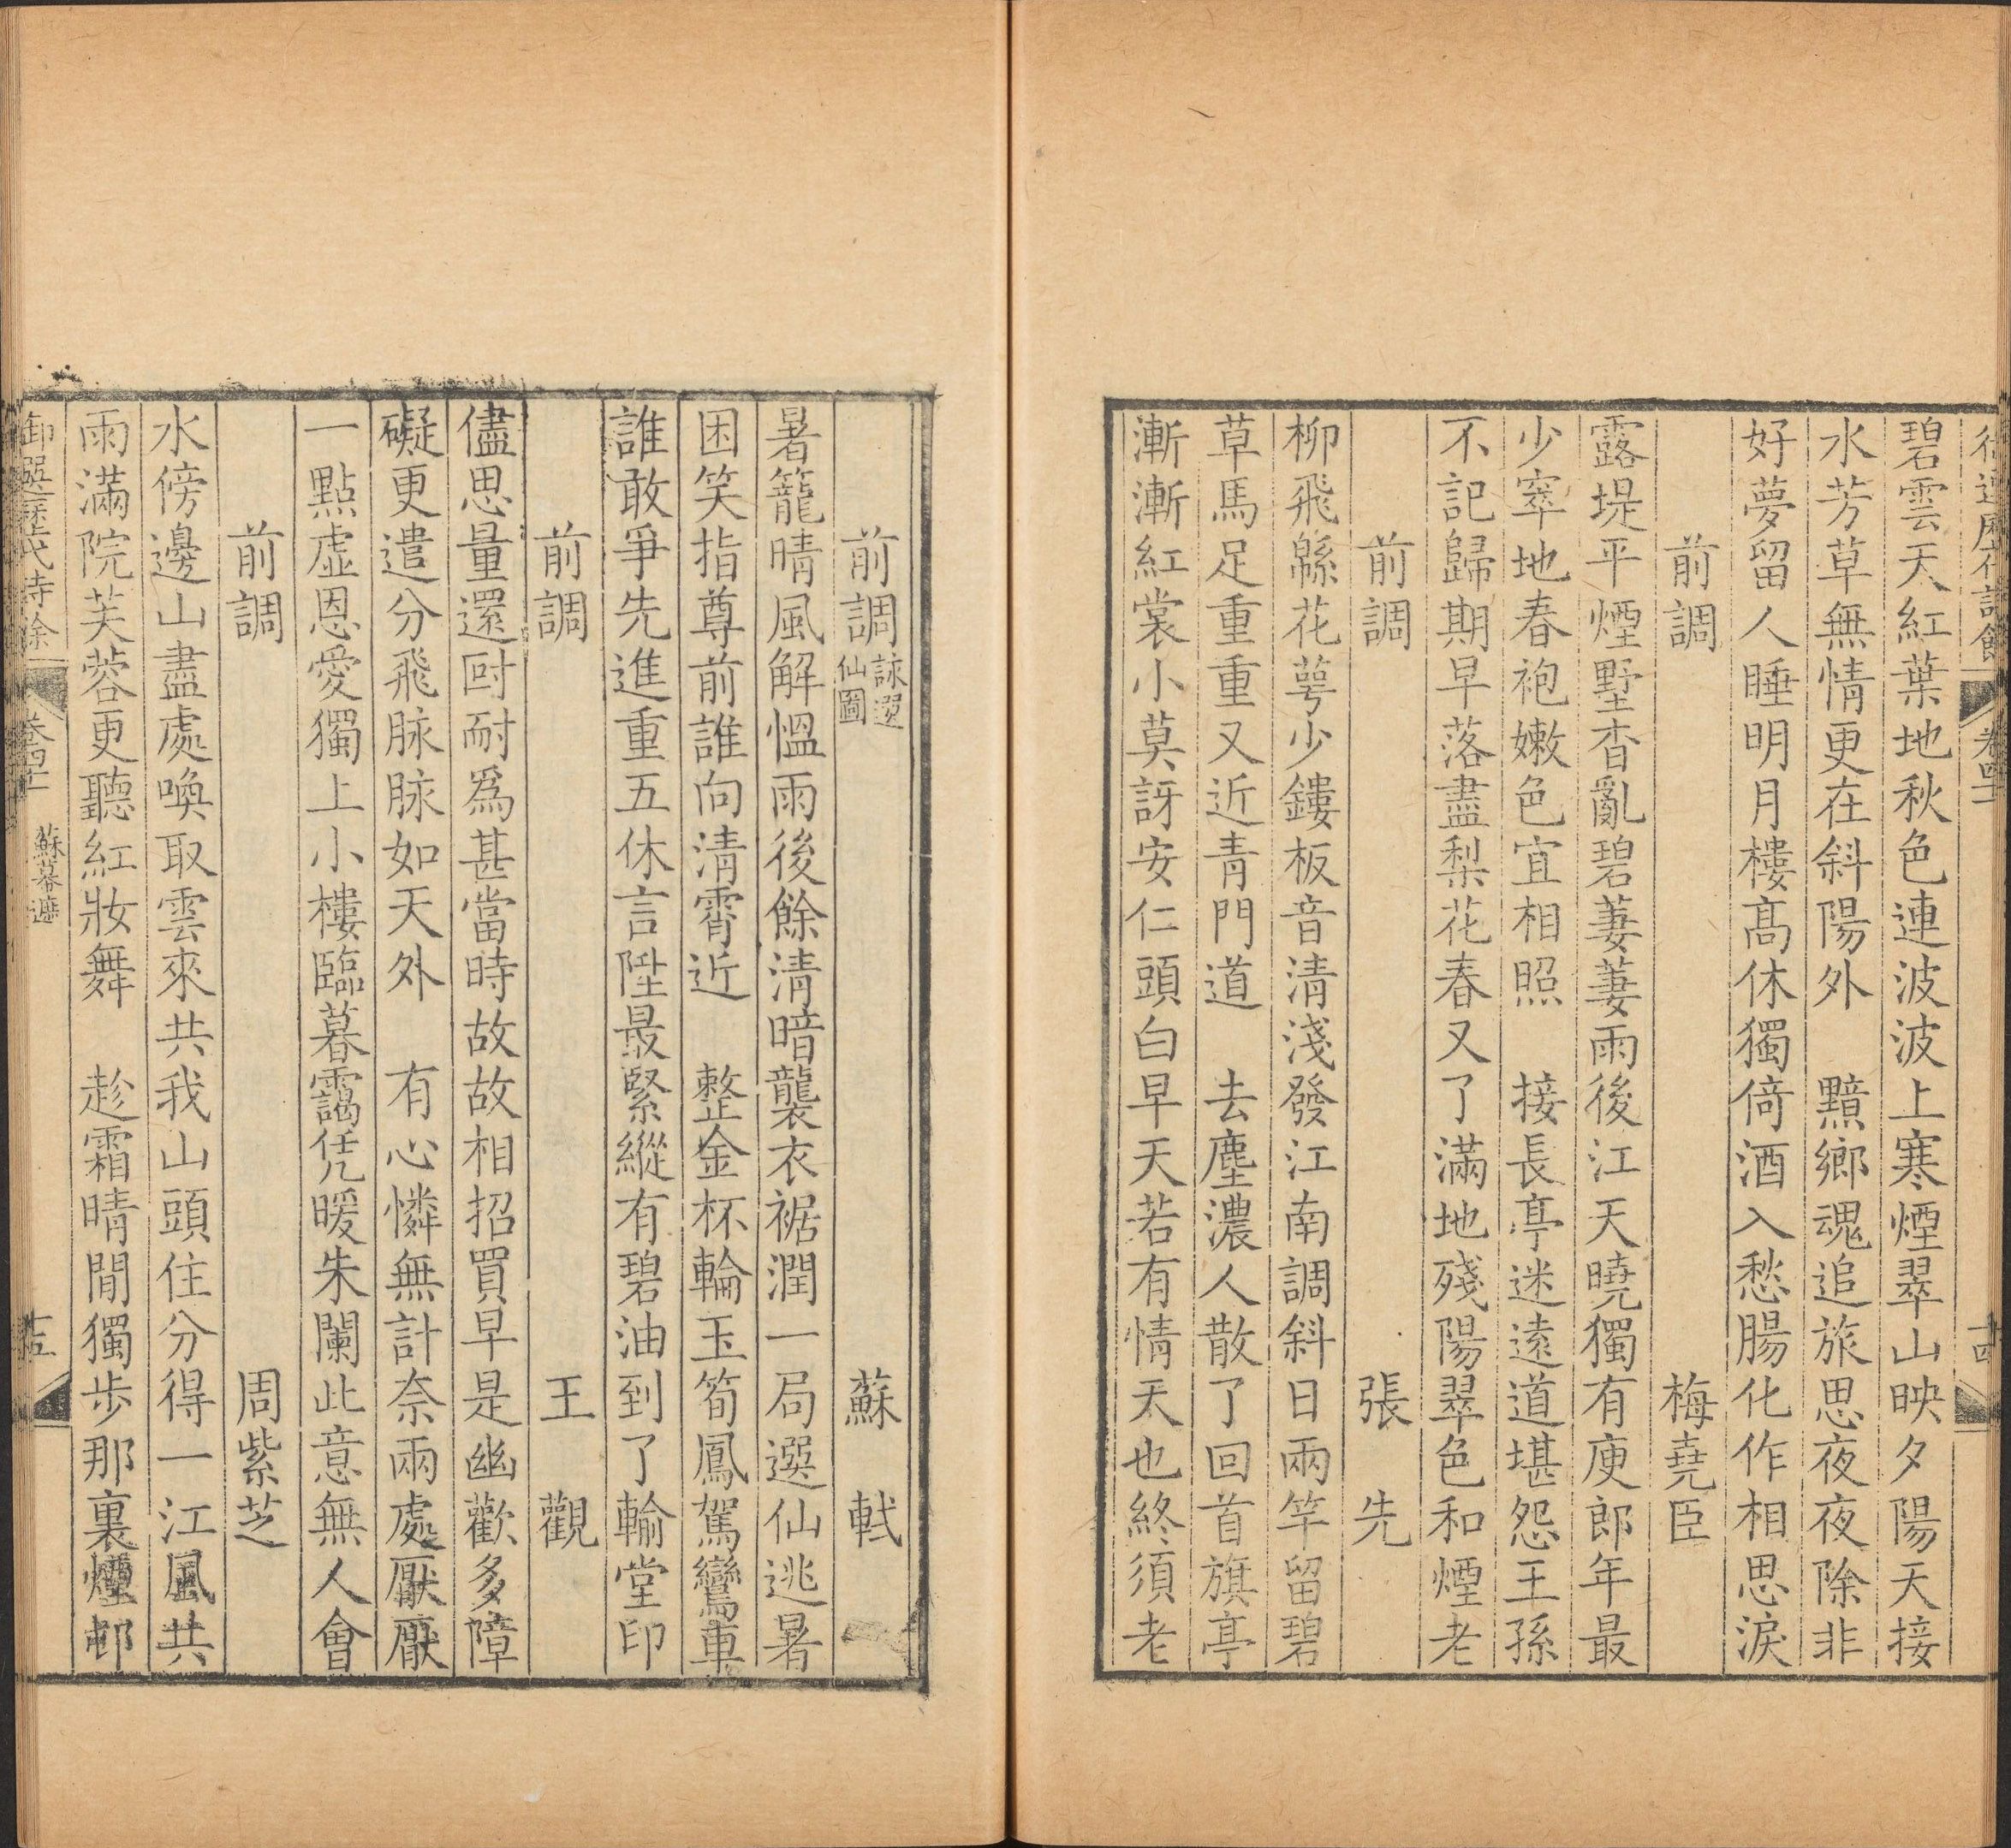 碧雲天紅葉地秋色連波波上寒煙翠山映夕陽天接
水芳草無情更在斜陽外　黯鄉魂追旅思夜夜除非
好夢留人睡明月樓高休獨倚酒入愁腸化作相思淚
前調　梅堯臣
露堤平煙墅杳亂碧萋萋雨後江天曉獨有庾郎年最
少窣地春袍嫩色宜相照　接長亭迷遠道堪怨王孫
不記歸期早落盡梨花春又了滿地殘陽翠色和煙老
前調　張　先
柳飛緜花萼少鏤板音清淺發江南調斜日兩竿留碧
草馬足重重又近青門道　去塵濃人散了回首旗亭
漸漸紅裳小莫訝安仁頭白早天若有情天也終須老
前調 詠選仙圖　蘇　軾
暑籠晴風解慍雨後餘清暗襲衣裾潤一局選仙逃暑
困笑指尊前誰向清霄近　整金杯輪玉筍鳳駕鸞車
誰敢爭先進重五休言陞最緊縱有碧油到了輸堂印
前調　王　觀
儘思量還叵耐爲甚當時故故相招買早是幽歡多障
礙更遣分飛脉脉如天外　有心憐無計奈兩處厭厭
一點虛恩愛獨上小樓臨暮靄凭暖朱闌此意無人會
前調　周紫芝
水傍邊山盡處喚取雲來共我山頭住分得一江風共
雨滿院芙蓉更聽紅妝舞　趁霜晴閒獨步那裏煙邨
御選歷代詩餘　卷四十一　蘇幕遮　十五